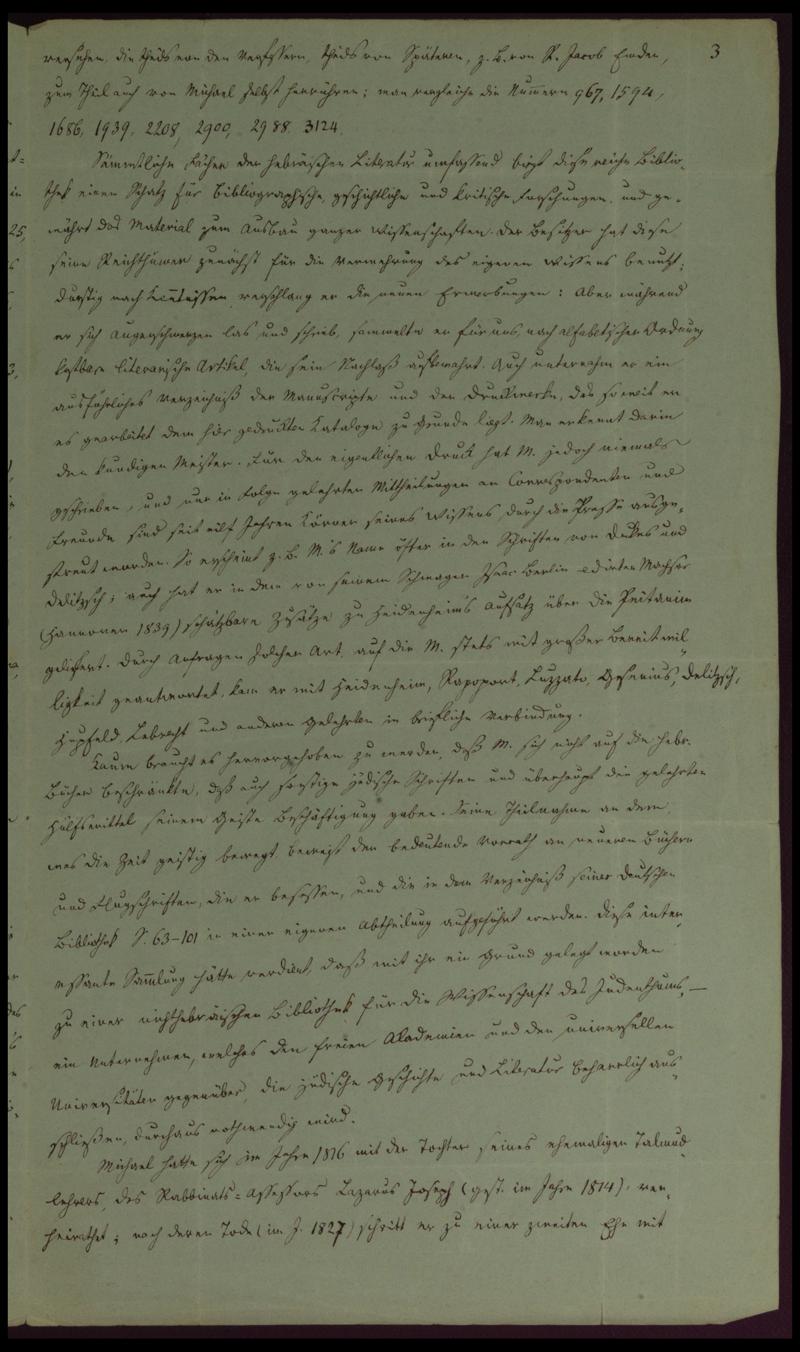 3
versehen, die theils von den Verfassern, theils von Späteren, z. B. von R. Jacob Emden,
zum Theil auch von Michael selbst herrühren; man vergleiche die Nummern 967, 1594,
1686, 1939, 2208, 2900, 2988. 3124.
Sämmtliche Fächer der hebräischen Literatur umfassend birgt diese reiche Biblio-
thek einen Schatz für bibliographische, geschichtliche und kritische Forschungen, und ge-
währt das Material zum Ausbau ganzer Wissenschaften. Der Besitzer hat diese
seine Reichthümer zunächst für die Vermehrung des eigenen Wissens benutzt;
durstig nach Kenntnissen verschlang er die neuen Erwerbungen: Aber während
er sich Augenschmerzen las und schrieb, sammelte er für uns nach alfabetischer Ordnung
kostbare literarische Artikel, die sein Nachlaß aufbewahrt. Auch unternahm er ein
ausführliches Verzeichniß der Manuscripte und der Druckwerke, das so weit er
es gearbeitet dem hier gedruckten Kataloge zu Grunde liegt. Man erkennt darin
den kundigen Meister. Für den eigentlichen Druck hat M. jedoch niemals
geschrieben, und nur in Folge gelehrter Mittheilungen an Correspondenten und
Freunde sind seit eilf Jahren Körner seines Wissens durch die Presse ausge-
streut worden. So erscheint z. B. M.'s Name öfter in den Schriften von Dukes und
Delitzsch; auch hat er in dem von seinem Schwager Isaac Berlin edirten Machsor
(Hannover 1839) schätzbare Zusätze zu Heidenheim's Aufsatz über die Peitanim
geliefert. Durch Anfragen solcher Art, auf die M. stets mit großer Bereitwil-
ligkeit geantwortet, kam er mit Heidenheim, Rapoport, Luzzato, Gesenius, Delitzsch,
Hupfeld, Lebrecht und anderen Gelehrten in briefliche Verbindung.
Kaum braucht es hervorgehoben zu werden, daß M. sich nicht auf die hebr.
Bücher beschränkte, daß auch sonstige jüdische Schriften und überhaupt die gelehrten
Hülfsmittel seinem Geiste Beschäftigung gaben. Seine Theilnahme an dem,
was die Zeit geistig bewegt, beweist der bedeutende Vorrath an neueren Büchern
und Flugschriften, die er besessen, und die in dem Verzeichniß seiner deutschen
Bibliothek S. 63–101 in einer eigenen Abtheilung aufgeführt werden. Diese inter-
essante Sammlung hätte verdient, daß mit ihr ein Grund gelegt worden
zu einer nichthebräischen Bibliothek für die Wissenschaft des Judenthums, —
ein Unternehmen, welches den freien Akademien und den universellen
Universitäten gegenüber, die jüdische Geschichte und Literatur beharrlich aus-
schließen, durchaus nothwendig wird.
Michael hatte sich im Jahre 1816 mit der Tochter seines ehemaligen Talmud-
lehrers, des Rabbinats-Assessors Lazarus Joseph (gest. im Jahre 1814), ver-
heirathet; nach deren Tode (im J. 1827) schritt er zu einer zweiten Ehe mit